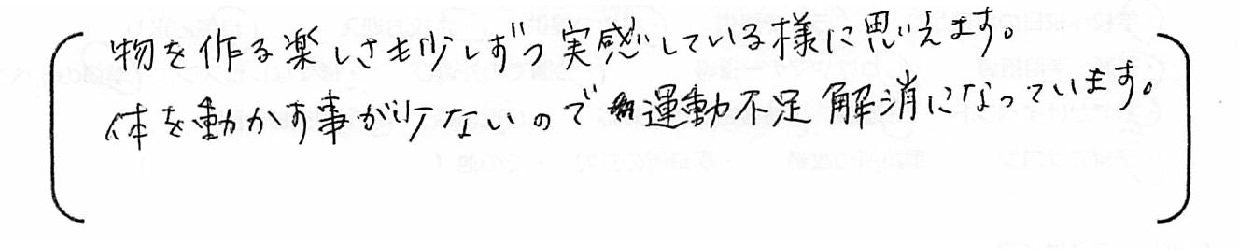 物を作る楽しさも少しずつ実感している様に思えます。
体を動かす事が少ないので運動不足解消になっています。